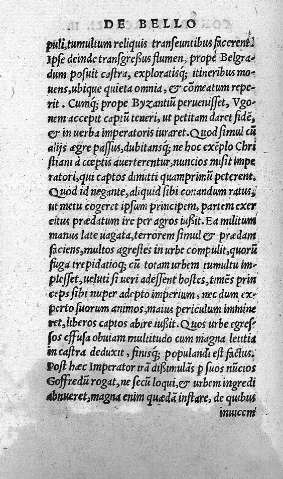 DE BELLO
puli, tumultum reliquis transeuntibus facerent.
Ipse deinde transgressus flumen, prope Belgra-
dum posuit castra, exploratisq; itineribus mo-
uens, ubique quieta omnia, & cōmeatum repe-
rit. Cumq; prope Byzantiũ peruenisset, Vgo-
nem accepit captũ teneri, ut petitam daret fidē,
& in uerba imperatoris iuraret. Quod simul cũ
alijs ægre passus, dubitansq; ne hoc exēplo Chri
stiani à cœptis auerterentur, nuncios misit impe
ratori, qui captos dimitti quamprimũ peterent.
Quod id negante, aliquid sibi conandum ratus,
ut metu cogeret ipsum principem, partem exer
citus prædatum ire per agros iußit. Ea militum
manus late uagata, terrorem simul & prædam
faciens, multos agrestes in urbē compulit, quorũ
fuga trepidatioq; cũ totam urbem tumultu im-
plesset, ueluti si ueri adessent hostes, timēs prin
ceps sibi nuper adepto imperium, nec dum ex-
perto suorum animos, maius periculum immine
ret, liberos captos abire iußit. Quos urbe egres-
sos effusa obuiam multitudo cum magna letitia
in castra deduxit, finisq; populandi est factus.
Post hæc Imperator irā dißimulās p suos nũcios
Goffredũ rogat, ne secũ loqui, & urbem ingredi
abnueret, magna enim quædā instare, de quibus
inuicem